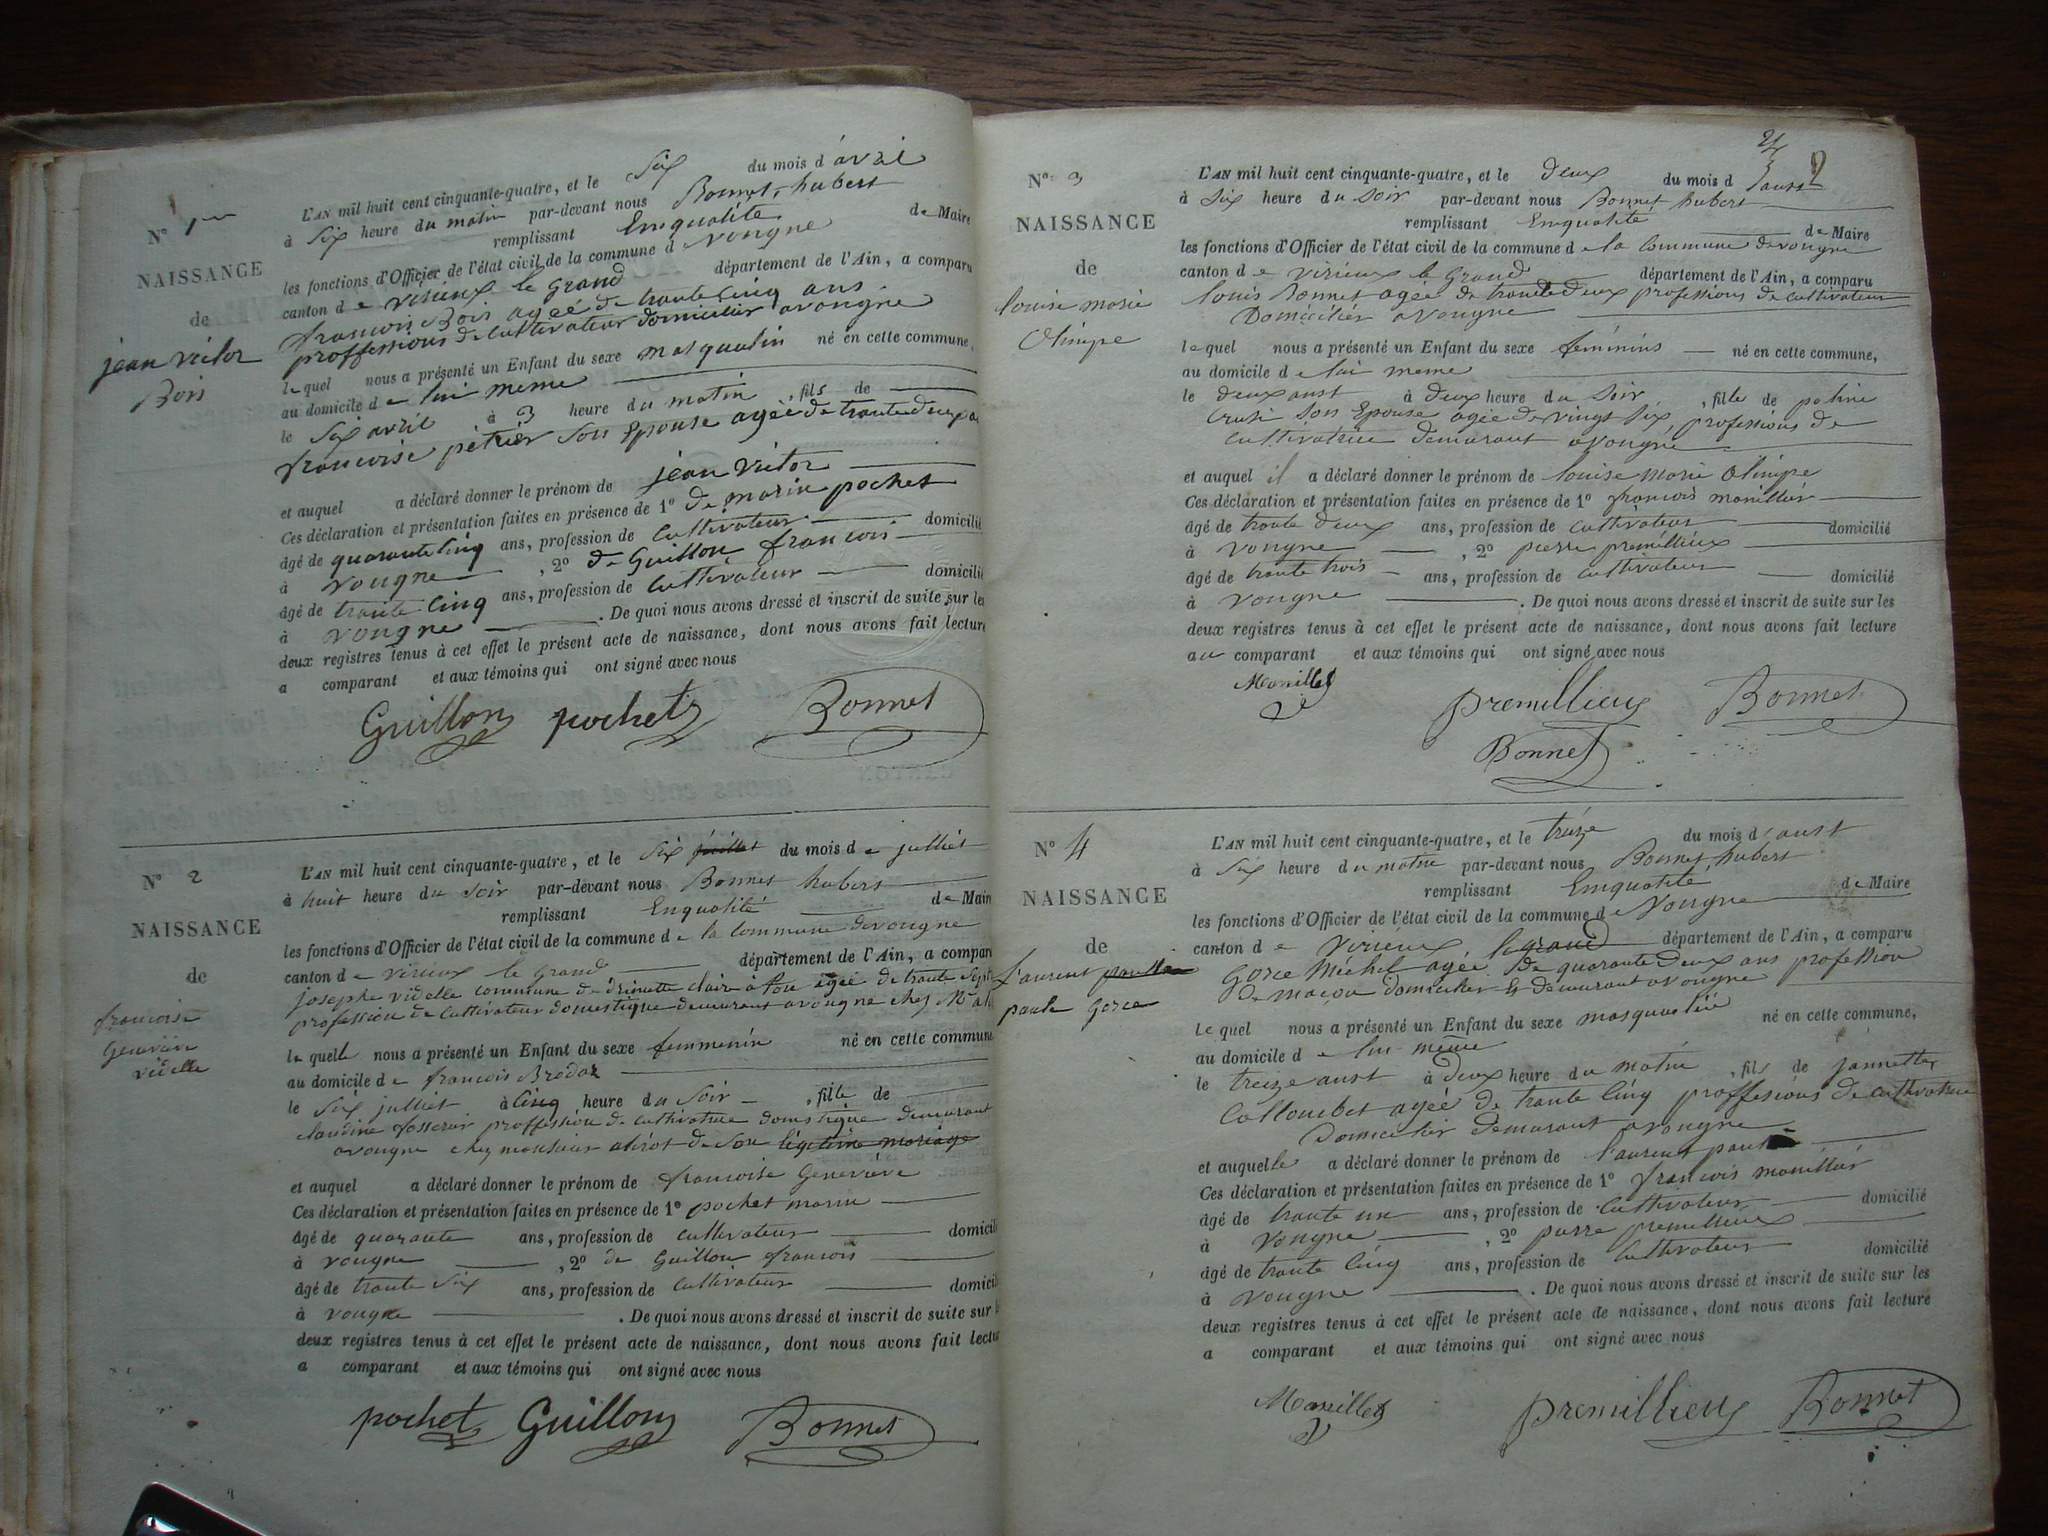 N° 1er
NAISSANCE
de
jean victor
Bois
L'AN mil huit cent cinquante-quatre, et le Six du mois d'avril
à Six heure du matin par-devant nous Bonnet, hubert
remplissant Emqualite de Maire
les fonctions d'Officier de l'état civil de la commune d Vougne
canton de virieux le Grand département de l'Ain, a comparu
francois Bois agéé de trante cinq ans
proffessions de Cultivateur domicilier avougne
le quel nous a présenté un Enfant du sexe masqualin né en cette commune,
au domicile de lui meme
le Six avril à 3 heure du matin, fils de
francoise pétrier son Epouse agéé de trante deux a
et auquel a déclaré donner le prénom de jean victor
Ces déclaration et présentation faites en présence de 1° de marin pochet
âgé de quarante cinq ans, profession de cultivateur domicilié
à vougne, 2° de Guillon francois
âgé de trante Cinq ans, profession de Cultivateur domicilié
à vougne. De quoi nous avons dressé et inscrit de suite sur les
deux registres tenus à cet effet le présent acte de naissance, dont nous avons fait lecture
a comparant et aux témoins qui ont signé avec nous
Guillon pochet Bonnet
N° 2
NAISSANCE
de
francoise
Genevieve
videlle
L'AN mil huit cent cinquante-quatre, et le Six juillet du mois de julliet
à huit heure du Soir par-devant nous Bonnet hubert
remplissant Enqualité de Maire
les fonctions d'Officier de l'état civil de la commune de la commune de vougne
canton de virieux le Grand département de l'Ain, a comparu
josephe videlle commune de agée de trante Sept
profession de Cultivateur domestique demeurant avougne chez Mr
la quelle nous a présenté un Enfant du sexe femmenin né en cette commune
au domicile de francois Brodaz
le Six julliet à Cinq heure du Soir, fille de
claudine proffession de cultivatrice domestique demeurant
avougne chez monsieur de Son légitime mariage
et auquel a déclaré donner le prénom de francoise Geneviève
Ces déclaration et présentation faites en présence de 1° pochet marin
âgé de quarante ans, profession de cultivateur domicilié
à vougne, 2° de Guillon francois
âgé de trante Six ans, profession de Cultivateur domicilié
à vougne. De quoi nous avons dressé et inscrit de suite sur les
deux registres tenus à cet effet le présent acte de naissance, dont nous avons fait lecture
a comparant et aux témoins qui ont signé avec nous
pochet Guillon Bonnet
2
N° 3
NAISSANCE
de
louise marie
Olimpe
L'AN mil huit cent cinquante-quatre, et le deux du mois d'aust
à Six heure du Soir par-devant nous Bonnet hubert
remplissant Emqualité de Maire
les fonctions d'Officier de l'état civil de la commune de la commune de vougne
canton de virieux le Grand département de l'Ain, a comparu
louis Bonnet agéé de trante deux professions de Cultivateur
Domicilier avougne
le quel nous a présenté un Enfant du sexe féminins né en cette commune,
au domicile de lui meme
le deux aust à deux heure du Soir, fille de poline
Son Epouse agée de vingt Six professions de
Cultivatrice demeurant avougne
et auquel il a déclaré donner le prénom de louise Marie Olimpe
Ces déclaration et présentation faites en présence de 1° francois
âgé de trante deux ans, profession de cultivateur domicilié
à vougne, 2° pierre premillieux
âgé de trante trois ans, profession de cultivateur domicilié
à vougne. De quoi nous avons dressé et inscrit de suite sur les
deux registres tenus à cet effet le présent acte de naissance, dont nous avons fait lecture
au comparant et aux témoins qui ont signé avec nous
premillieux Bonnet
Bonnet
N° 4
NAISSANCE
de
Laurent
paule Gorce
L'AN mil huit cent cinquante-quatre, et le treize du mois d'aust
à Six heure du matin par-devant nous Bonnet, hubert
remplissant Emqualité de Maire
les fonctions d'Officier de l'état civil de la commune de Vougne
canton de virieux le grand département de l'Ain, a comparu
Gorce Méchel agéé de quarante deux ans profession
de macon domicilier & demeurant avougne
le quel nous a présenté un Enfant du sexe né en cette commune,
au domicile de lui meme
le treize aust à deux heure du matin, fils de jannette
Collombet agéé de trante Cinq proffesions de cultivatrice
Domicilier demeurant avougne
et auquelle a déclaré donner le prénom de Laurent
Ces déclaration et présentation faites en présence de 1° francois
âgé de trante un ans, profession de Cultivateur domicilié
à vougne, 2° pierre premillieux
âgé de trante Cinq ans, profession de Cultivateur domicilié
à vougne. De quoi nous avons dressé et inscrit de suite sur les
deux registres tenus à cet effet le présent acte de naissance, dont nous avons fait lecture
a comparant et aux témoins qui ont signé avec nous
premillieux Bonnet